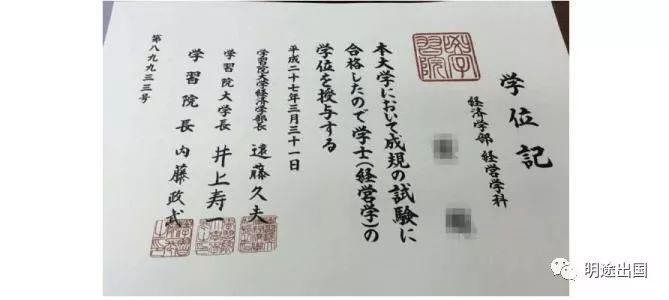 学位記
経済学部 経営学科
学習院
本大学において成規の試験に
合格したので学士（経営学）の
学位を授与する
平成二十七年三月三十一日
学習院大学経済学部長 遠藤久夫
学習院大学長 井上寿一
学習院長 内藤政武
第八九九三三号
明途出国